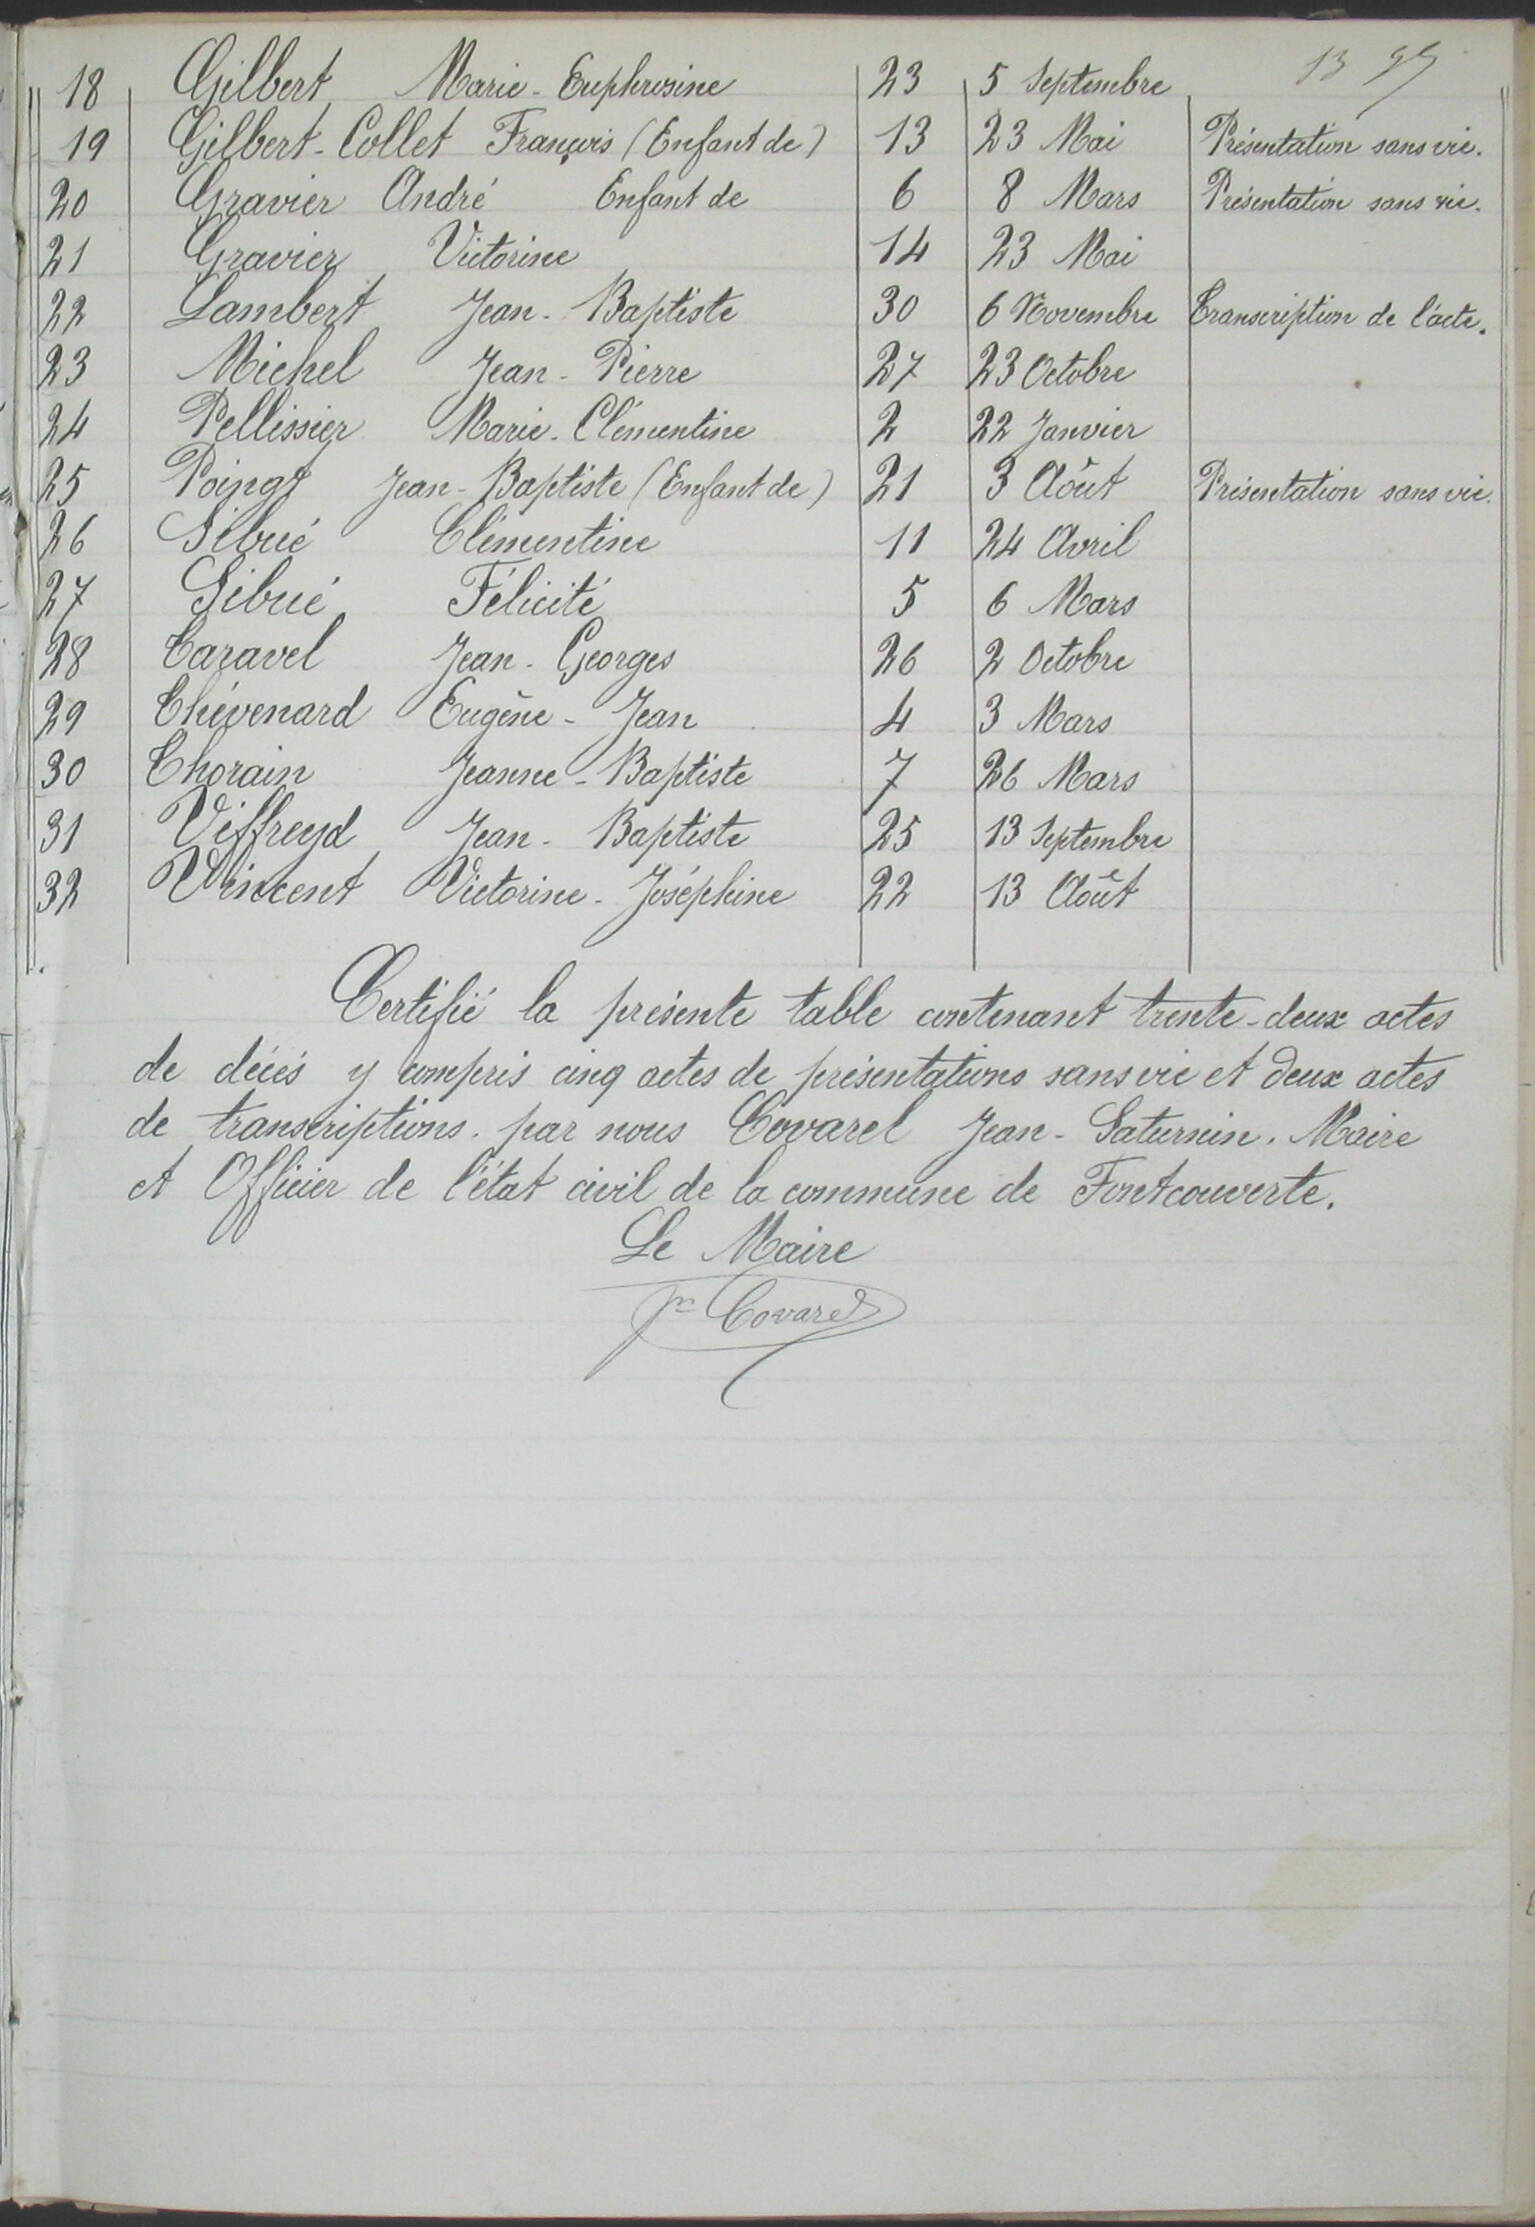 18 Gilbert Marie-Euphrosine 23 5 Septembre 13
19 Gilbert-Collet François (Enfant de) 13 23 Mai Présentation sans vie.
20 Gravier André Enfant de 6 8 Mars Présentation sans vie.
21 Gravier Victorine 14 23 Mai
22 Lambert Jean-Baptiste 30 6 Novembre Transcription de l'acte.
23 Michel Jean-Pierre 27 23 Octobre
24 Pellissier Marie-Clémentine 2 22 Janvier
25 Poingt Jean-Baptiste (Enfant de) 21 3 Août Présentation sans vie.
26 Sibué Clémentine 11 24 Avril
27 Sibué Félicité 5 6 Mars
28 Taravel Jean-Georges 26 2 Octobre
29 Thévenard Eugène-Jean 4 3 Mars
30 Thorain Jeanne-Baptiste 7 26 Mars
31 Viffreyd Jean-Baptiste 25 13 Septembre
32 Vincent Victorine-Joséphine 22 13 Août
Certifié la présente table contenant trente-deux actes
de décés y compris cinq actes de présentations sans vie et deux actes
de transcriptions. par nous Covarel Jean-Saturnin. Maire
et Officier de l'état civil de la commune de Fontcouverte.
Le Maire
Jn Covarel